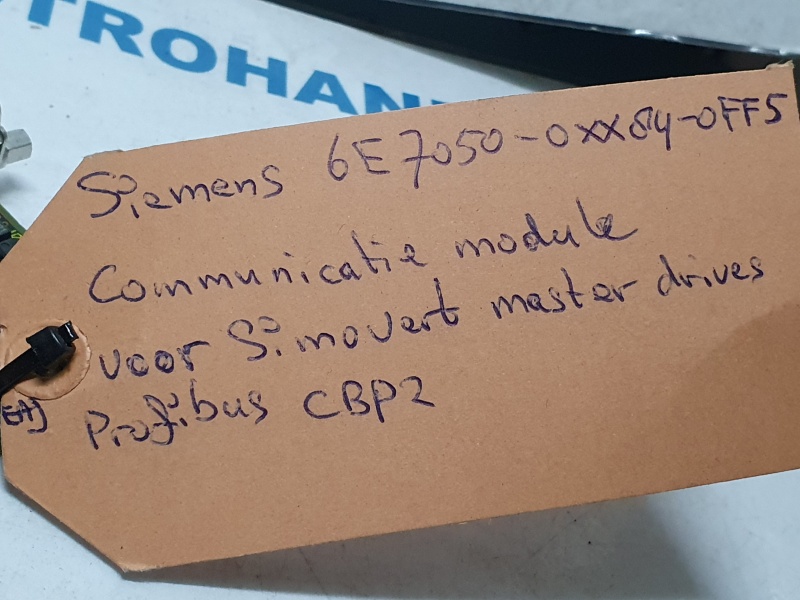 TROHAN
Siemens 6E7050-0XX84-0FF5
Communicatie module
voor Simovert master drives
Profibus CBP2